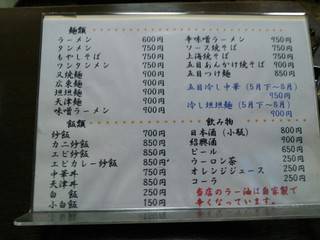 麺類
ラーメン 600円
タンメン 750円
もやしそば 750円
ワンタンメン 750円
五目麺 900円
広東麺 900円
坦坦麺 900円
天津麺 900円
味噌ラーメン 900円
辛味噌ラーメン 950円
ソース焼そば 750円
上海焼そば 750円
五目あんかけ焼そば 900円
五目つけ麺 850円
五目冷し中華 (5月下〜8月)
950円
冷し坦坦麺 (5月下〜8月)
950円
飯類
炒飯 700円
カニ炒飯 850円
エビ炒飯 850円
エビカレー炒飯 850円
中華丼 750円
天津丼 850円
白飯 250円
小白飯 150円
飲み物
日本酒 (小瓶) 800円
紹興酒 900円
ビール 650円
ウーロン茶 250円
オレンジジュース 250円
コーラ 250円
当店のラー油は自家製で
辛くなっています。